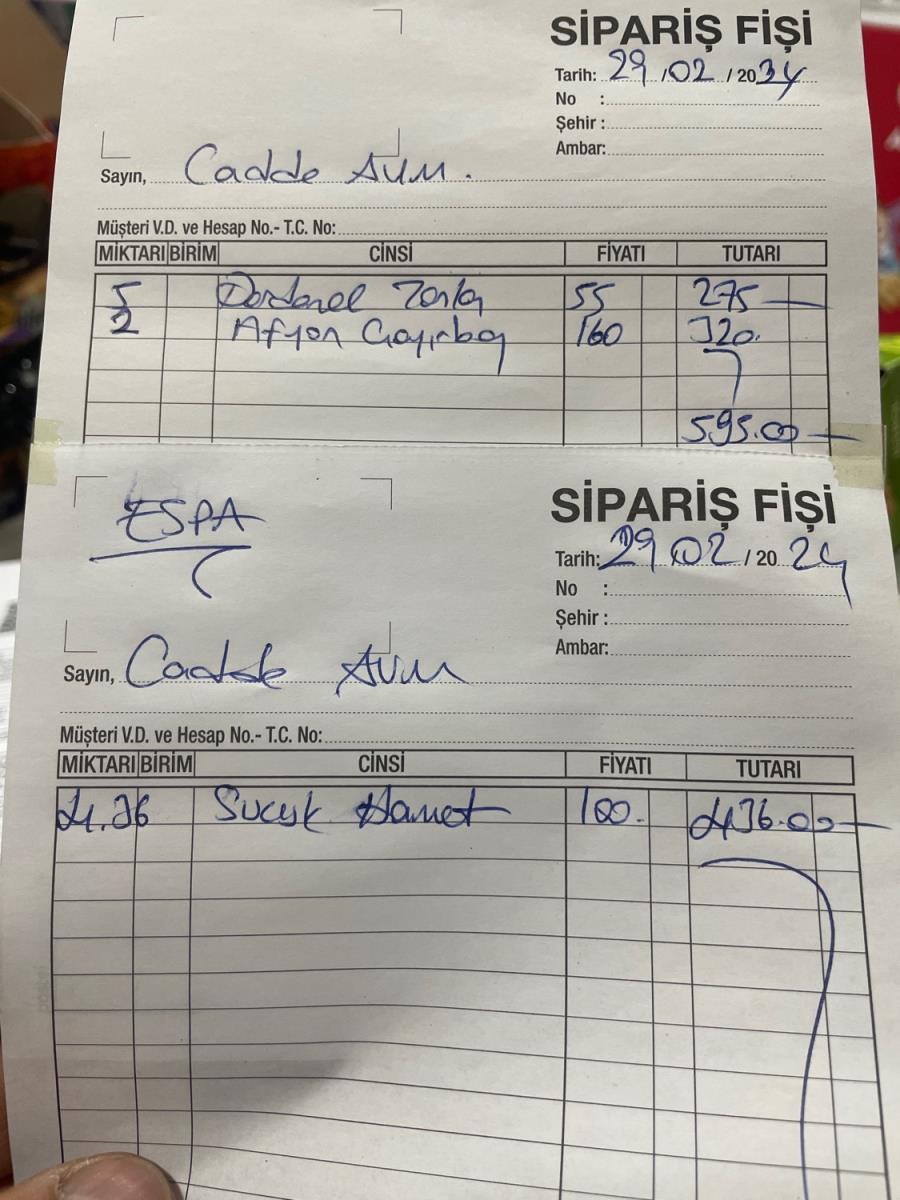 SİPARİŞ FİŞİ
Tarih: 29/02/2034
No :
Şehir :
Ambar:
Sayın, Cadde AVM.
Müşteri V.D. ve Hesap No.- T.C. No:
MİKTARI BİRİM CİNSİ FİYATI TUTARI
5 Dardanel 55 275
2 Afyon 160 320.
595.00
ESPA
SİPARİŞ FİŞİ
Tarih: 29.02/2024
No :
Şehir :
Ambar:
Sayın, Cadde AVM
Müşteri V.D. ve Hesap No.- T.C. No:
MİKTARI BİRİM CİNSİ FİYATI TUTARI
4.36 Sucuk 100. 436.00